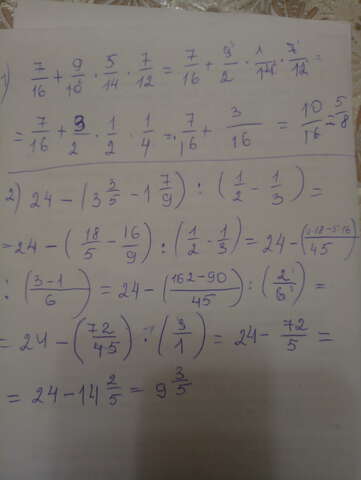 1) 7/16 + 9/10 · 5/14 · 7/12 = 7/16 + 9³/2 · 1/14 · 7¹/12 =
= 7/16 + 3/2 · 1/2 · 1/4 = 7/16 + 3/16 = 10/16 = 5/8
2) 24 - (3 3/5 - 1 7/9) : (1/2 - 1/3) =
= 24 - (18/5 - 16/9) : (1/2 - 1/3) = 24 - (18-5·16)/45
: (3-1/6) = 24 - (162-90/45) : (2/6) =
= 24 - (72/45) · (3/1) = 24 - 72/5 =
= 24 - 14 2/5 = 9 3/5